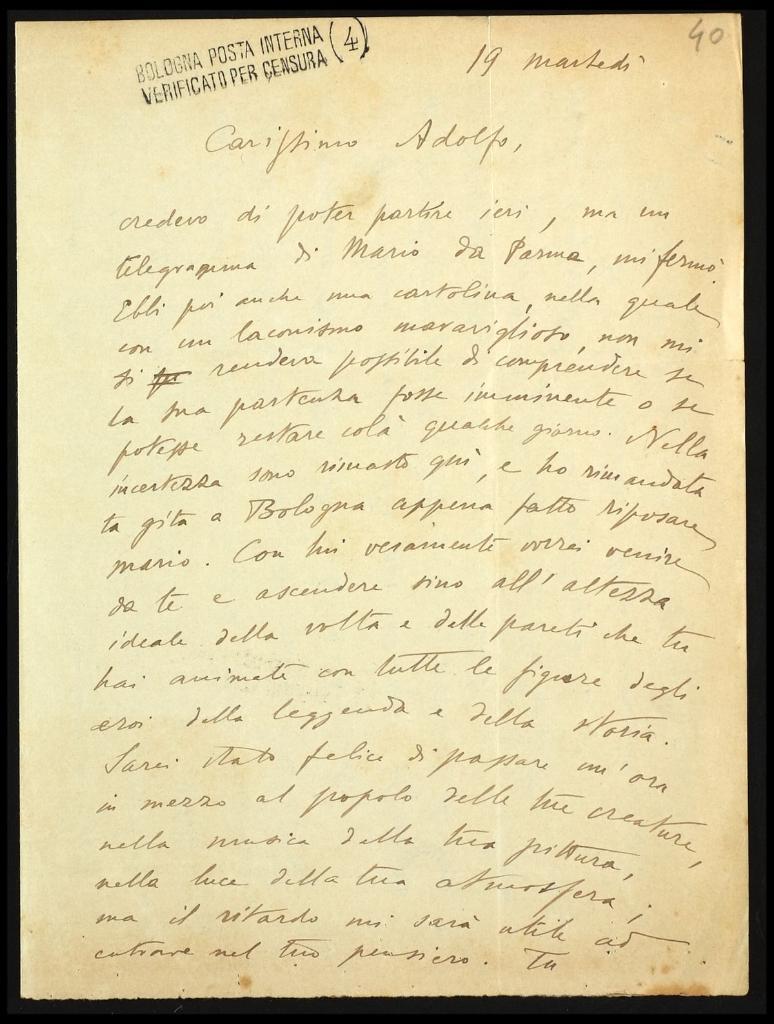 40
BOLOGNA POSTA INTERNA (4)
VERIFICATO PER CENSURA
19 martedì
Carissimo Adolfo,
credevo di poter partire ieri, ma un
telegramma di Mario da Parma, mi fermò.
Ebbi poi anche una cartolina, nella quale
con un laconismo maravariglioso, non mi
si rendeva possibile di comprendere se
la sua partenza fosse imminente o se
potesse restare colà qualche giorno. Nella
incertezza sono rimasto qui, e ho rimandata
la gita a Bologna appena fatto riposare
Mario. Con lui veramente vorrei venire
da te e ascendere sino all'altezza
ideale della volta e delle pareti che tu
hai animate con tutte le figure degli
eroi della leggenda e della storia.
Sarei stato felice di passare un'ora
in mezzo al popolo delle tue creature,
nella musica della tua pittura,
nella luce della tua atmosfera;
ma il ritardo mi sarà utile ad
entrare nel tuo pensiero. Tu